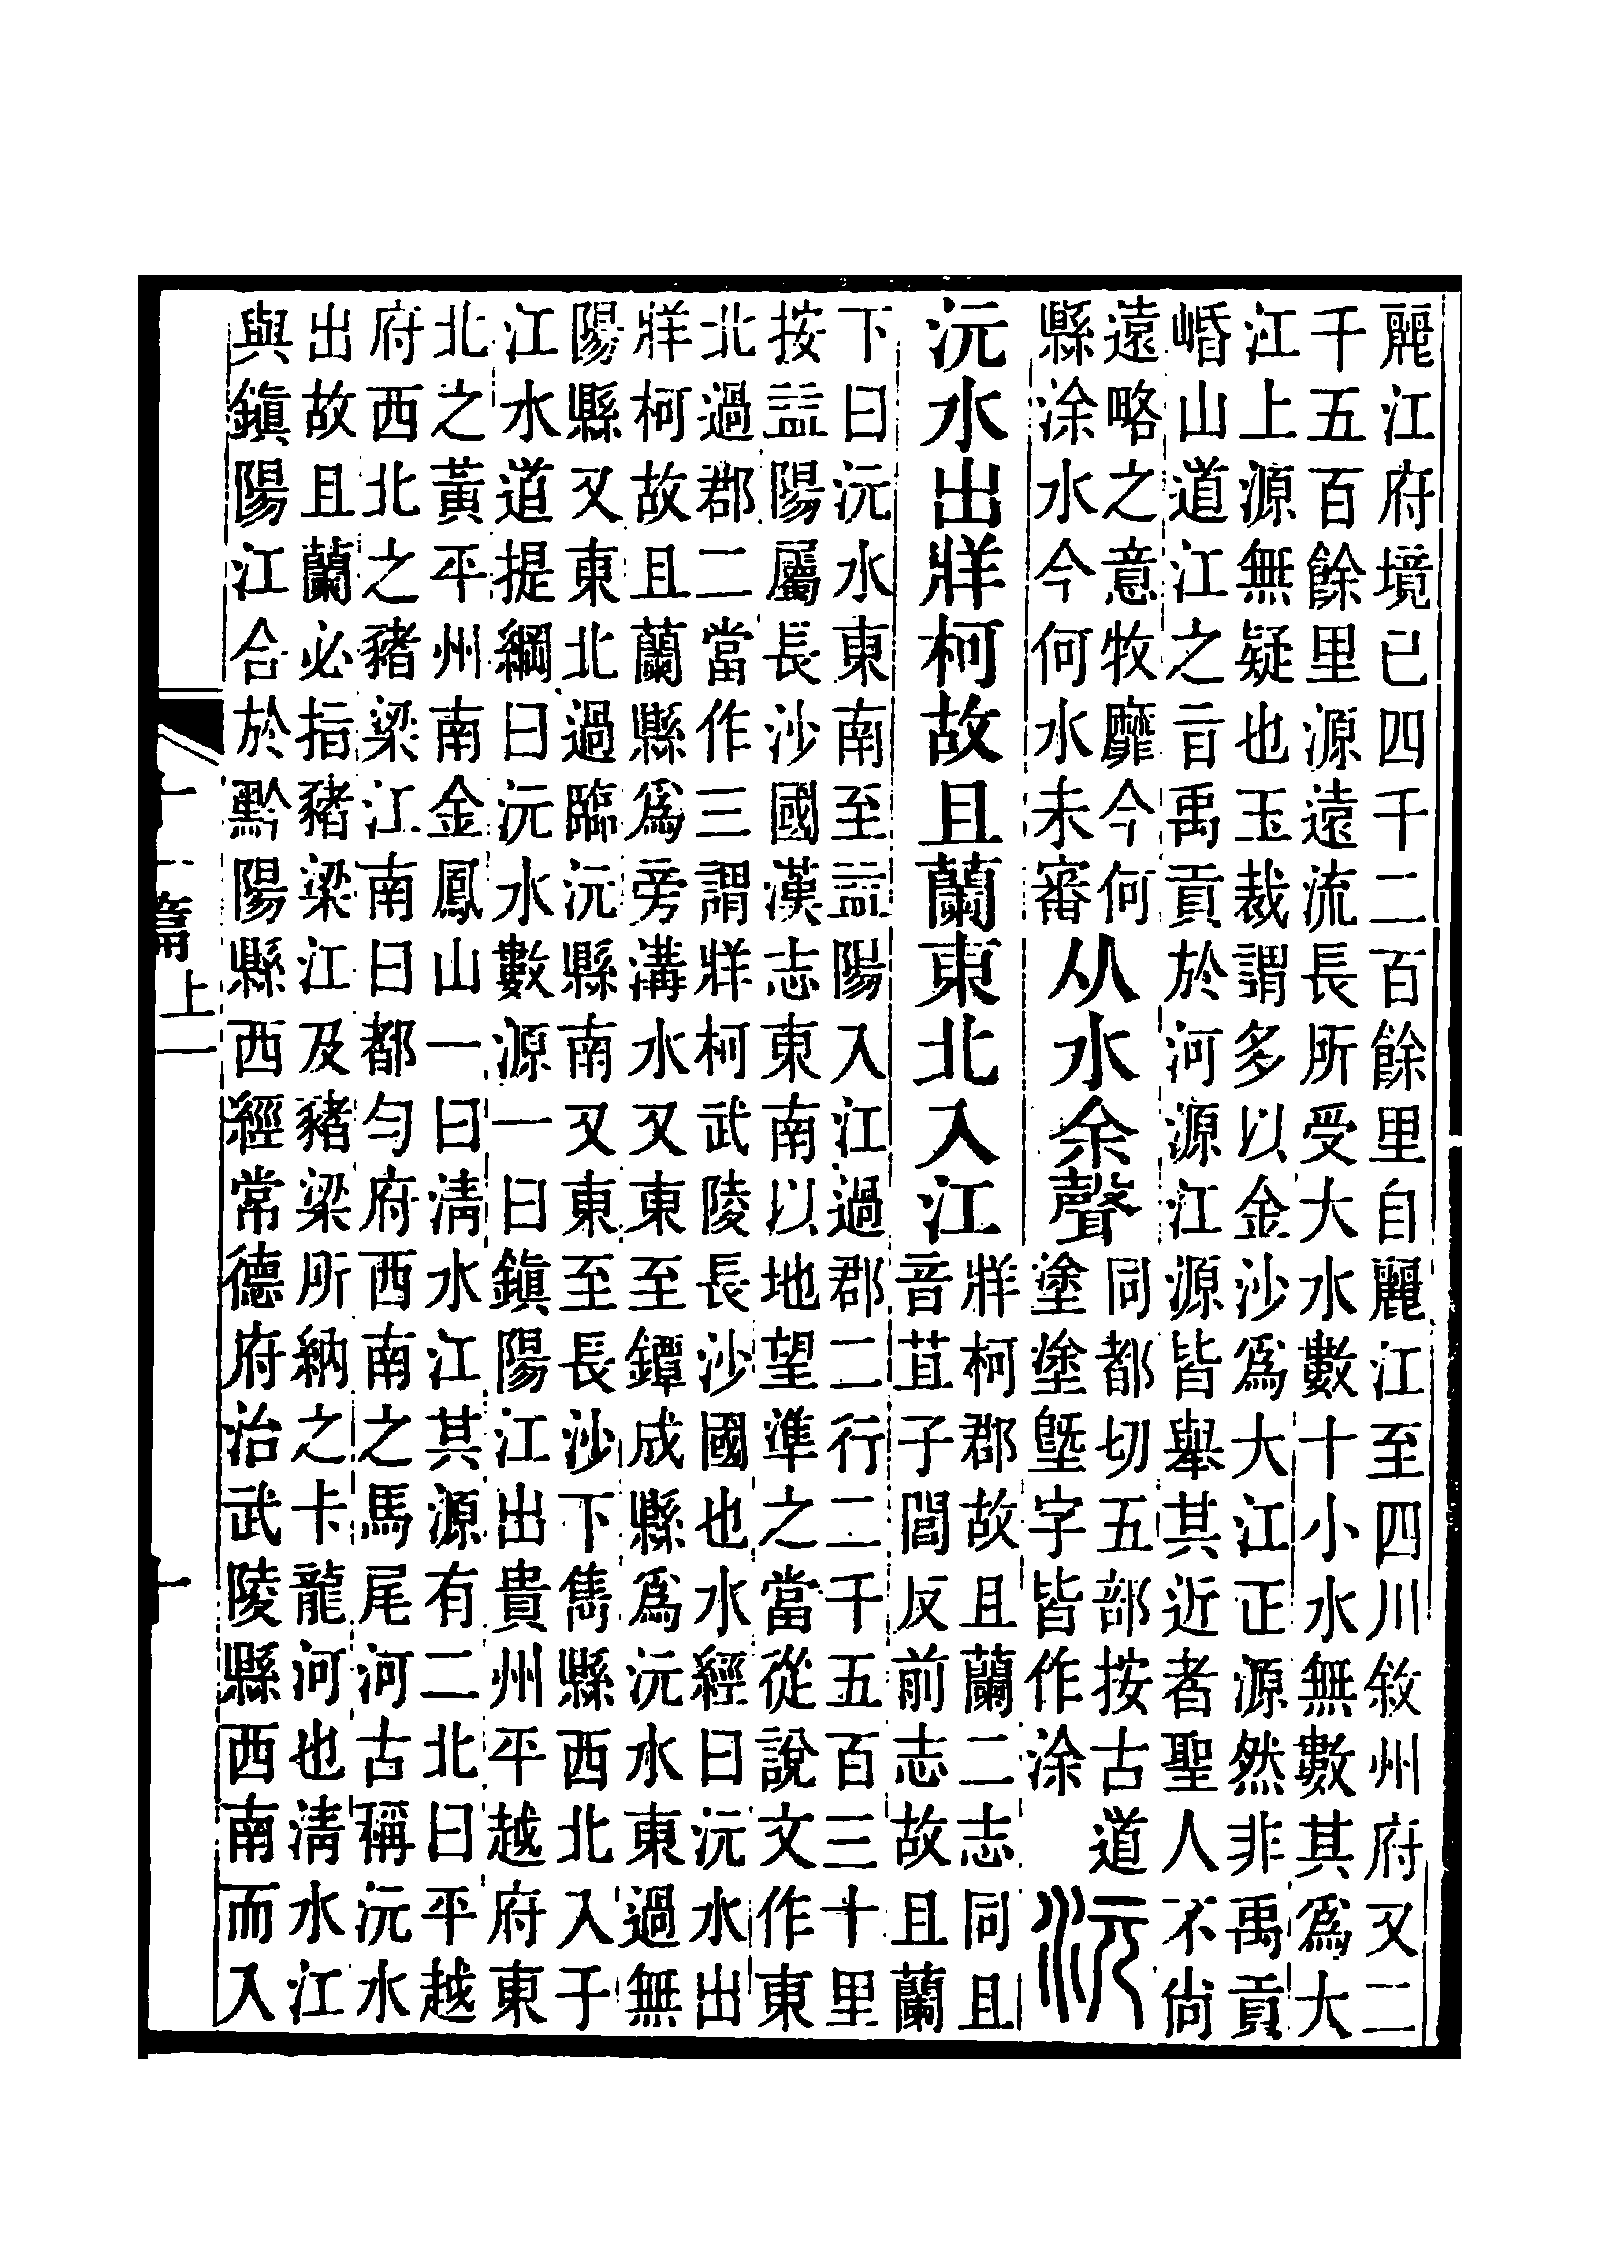 麗江府境已四千二百餘里自麗江至四川敘州府又二
千五百餘里源遠流長所受大水數十小水無數其爲大
江上源無疑也玉裁謂多以金沙爲大江正源然非禹貢
㟭山道江之㫖禹貢於河源江源皆舉其近者聖人不尙
遠略之意牧靡今何
縣涂水今何水未審
从水余聲
同都切五部按古道
塗塗塈字皆作涂
沅
沅水出牂柯故且蘭東北入江
牂柯郡故且蘭二志同且
音苴子閭反前志故且蘭
下曰沅水東南至益陽入江過郡二行二千五百三十里
按益陽屬長沙國漢志東南以地望準之當從說文作東
北過郡二當作三謂牂柯武陵長沙國也水經曰沅水出
牂柯故且蘭縣爲旁溝水又東至鐔成縣爲沅水東過無
陽縣又東北過臨沅縣南又東至長沙下雋縣西北入于
江水道提綱曰沅水數源一曰鎭陽江出貴州平越府東
北之黃平州南金鳳山一曰淸水江其源有二北曰平越
府西北之豬梁江南曰都勻府西南之馬尾河古稱沅水
出故且蘭必指豬梁江及豬梁所納之卡龍河也淸水江
與鎭陽江合於黔陽縣西經常德府治武陵縣西南而入
十一篇上一
十